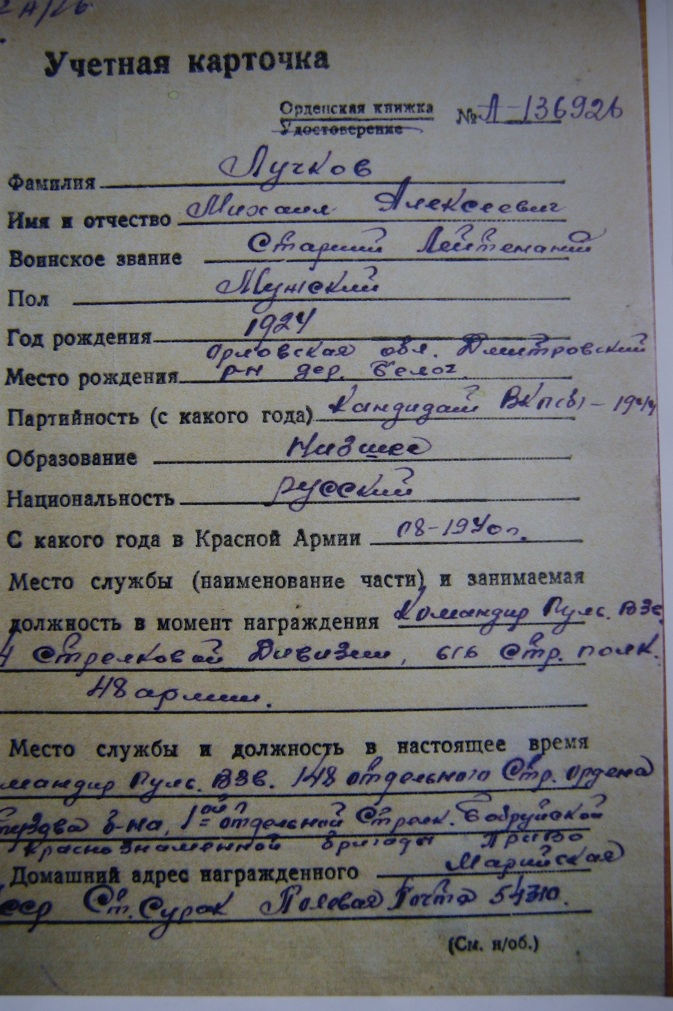 Учетная карточка
Орденская книжка № А-136926
Удостоверение
Фамилия Лучков
Имя и отчество Михаил Алексеевич
Воинское звание Старший Лейтенант
Пол Мужский
Год рождения 1924
Орловская обл. Дмитровский
Место рождения р-н дер.
Партийность (с какого года) Кандидат ВКП(б) - 1944
Образование Низшее
Национальность русский
С какого года в Красной Армии 08-1940г.
Место службы (наименование части) и занимаемая
должность в момент награждения Командир Пульс. Взв.
4 Стрелковой Дивизии, 616 Стр. полк.
48 армии.
Место службы и должность в настоящее время
мандир Пульс. Взв. 148 отдельного Стр. Ордена
б-на, 1ой отдельной Стрелк. Бобруйской
Краснознаменной бригады
Домашний адрес награжденного Марийская
сср Ст. Сурок Полевая Почта 54310.
(См. н/об.)